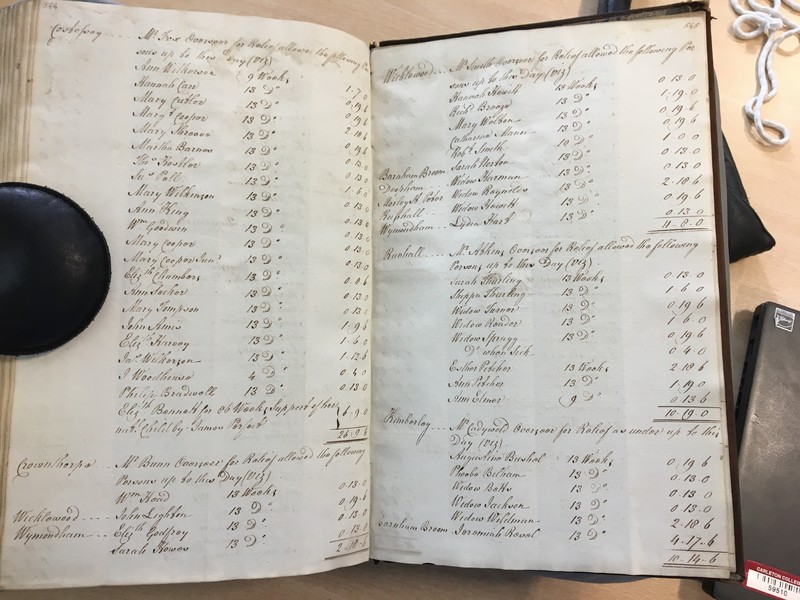 544
Costessey .... Mr. Fox Overseer for Relief allowed the following Per
sons up to this Day (Viz)
Ann Wilkerson 9 Weeks
Hannah Carr 13 Do. 1.7.0
Mary Curtor 13 Do. 0.19.6
Margt. Cooper 13 Do. 0.19.6
Mary Throwr 13 Do. 2.18.6
Martha Barnes 13 Do. 0.19.6
Thos. 13 Do. 0.13.0
Sus. Pall 13 Do. 0.13.0
Mary Wilkinson 13 Do. 1.6.0
Ann King 13 Do.
Wm. Goodwin 13 Do. 0.13.0
Mary Cooper 13 Do. 0.13.0
Mary Cooper Junr. 13 Do. 0.13.0
Elizth. Chambers 13 Do.
Ann 13 Do. 0.13.0
Mary Tompson 13 Do. 0.13.0
John Amis 13 Do. 1.9.6
Elizth. Harvey 13 Do. 1.6.0
Jas. Wilkerson 13 Do. 1.12.6
J Woodhouse 4 Do. 0.4.0
Philip Bradwell 13 Do. 0.13.0
Elizth. Bennett for 26 Weeks Support of her
natl. Child by James Perfect 6.9.0
26.9.6
Crownthorpe .. Mr. Bunn Overseer for Relief allowed the following
Persons up to this Day (Viz)
Wm. Hand 13 Weeks 0.13.0
Wicklewood .... John Lighten 13 Do. 0.19.6
Wymondham .... Elizth. Godfrey 13 Do. 0.13.0
Sarah Howes 13 Do. 0.13.0
2.18.6
545
Wicklewood .... Mr. Smith Overseer for Relief allowed the following Per
sons up to this Day (Viz)
Hannah Howitt 13 Weeks 0.13.0
Richd. Brooze 13 Do. 1.19.0
Mary Walton 13 Do. 0.19.6
Catharine Manes 13 Do. 0.19.6
Robt. Smith 10 Do. 1.0.0
Sarah Horton 13 Do. 0.13.0
Barnham Broom Widow Harman 13 Do. 0.13.0
Deopham .. Widow Raynolds 13 Do. 2.18.6
Morley St. Peter Widow Howitt 13 Do. 0.19.6
Wymondham .. Lydia Hart 13 Do. 0.13.0
11.8.0
Runhall .... Mr. Atkins Overseer for Relief allowed the following
Persons up to this Day (Viz)
Sarah Thurling 13 Weeks 0.13.0
Thurling 13 Do. 1.6.0
Widow Turner 13 Do. 0.19.6
Widow 13 Do. 1.6.0
Widow Spragg 13 Do. 0.19.6
Do. when Sick 0.4.0
Esther Pitcher 13 Weeks 2.18.6
Ann Pitcher 13 Do. 1.19.0
Ann Elmer 9 Do. 0.13.6
10.19.0
Kimberley .... Mr. Overseer for Relief as under up to this
Day (Viz)
Augustine Bushel 13 Weeks 0.19.6
Phoebe Beltram 13 Do. 0.13.0
Widow Batts 13 Do. 0.13.0
Widow Jackson 13 Do. 0.13.0
Widow Wildman 13 Do. 2.18.6
Barnham Broom Jeremiah 13 Do. 4.17.6
10.14.6
CARLETON COLLEGE
59510